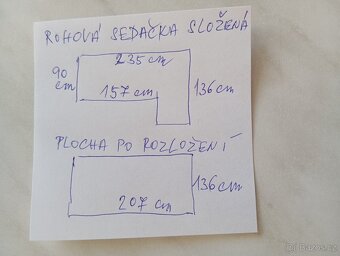 ROHOVÁ SEDAČKA SLOŽENÁ
235 cm
90 cm
157 cm
136 cm
PLOCHA PO ROZLOŽENÍ
136 cm
207 cm